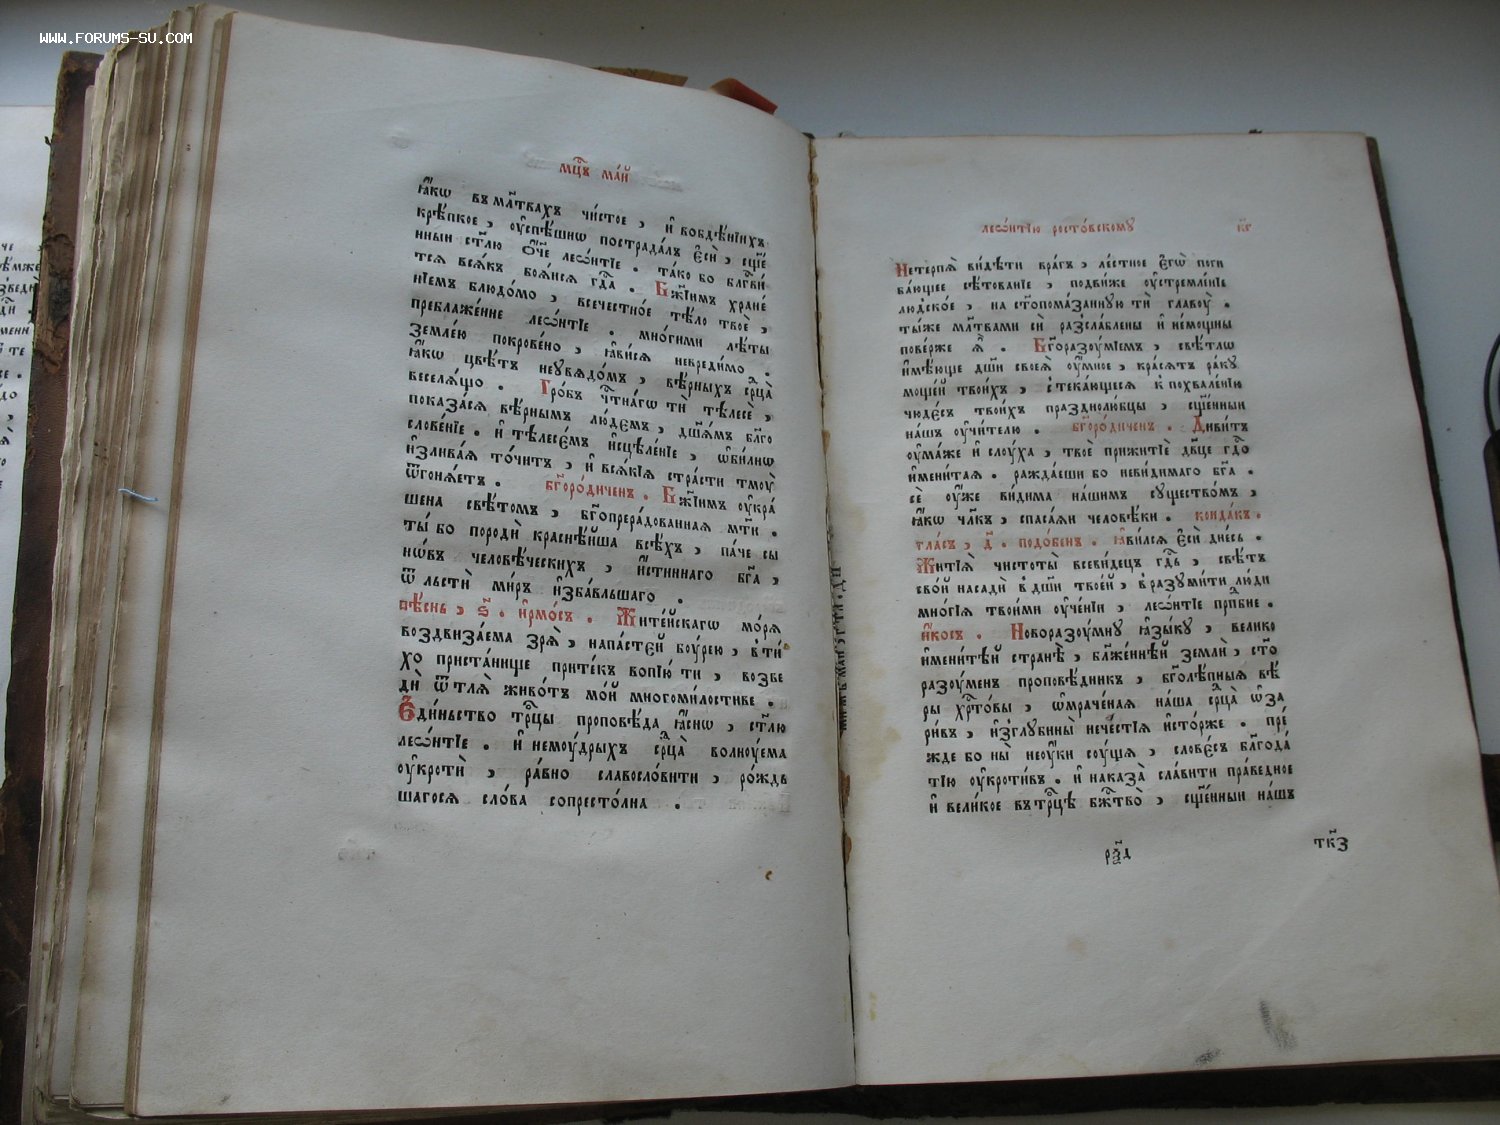 WWW.FORUMS-SU.COM
мц҃ъ ма́й
ꙗ҆́кѡ въ мл҃твахъ чи́стое , и҆ во бдѣ́нїихъ
крѣ́пкое , оу҆спѣ́шнѡ пострада́лъ є҆сѝ , сщ҃е́
нный ст҃лю ѻ҆́ч҃е лео́нтїе . та́ко бо бл҃гви́
тся всѧ́къ боѧ́йсѧ гдⷭ҇а . Бж҃їимъ хране́
нїемъ блюдо́мо , всечестно́е тѣ́ло твоѐ ,
преблаже́нне лео́нтїе . мно́гими лѣ́ты
земле́ю покрове́но , ꙗ҆ви́сѧ невреди́мо .
ꙗ҆́кѡ цвѣ́тъ неувѧдо́мъ , вѣ́рныхъ срⷣца̀
веселѧ́що . Гро́бъ чⷭ҇тна́гѡ тѝ тѣ́лесѐ ,
показа́сѧ вѣ́рнымъ лю́демъ , дш҃а́мъ бл҃го
слове́нїе . и҆ тѣ́лесе́мъ и҆сцѣле́нїе , ѡ҆би́лнѡ
и҆злива́ѧ то́читъ , и҆ всѧ́кїѧ стра́сти тмоу̀
ѿгонѧ́етъ . бг҃оро́диченъ . Бж҃їимъ оу҆кра́
шена свѣ́томъ , бг҃опрера́дованнаѧ мт҃и .
ты́ бо породѝ краснѣ́йша всѣ́хъ , па́че сы
нѡ́въ человѣ́ческихъ , и҆́стиннаго бг҃а ,
ѿ льстѝ ми́ръ и҆зба́вльшаго .
пѣ́снь , ѕ҃ . и҆рмо́съ . Жите́йскагѡ мо́рѧ
воздвиза́ема зрѧ̀ , напа́стей боу́рею , в ти́
хо приста́нище прите́къ вопїю́ ти , возве
дѝ ѿ тлѧ̀ живо́тъ мо́й многоми́лостиве .
Є҆ди́ньство трⷪ҇цы проповѣ́да ꙗ҆́снѡ , ст҃лю
лео́нтїе . и҆ немоу́дрыхъ срⷣца̀ волноу́ема
оу҆кротѝ , ра́вно славосло́вити , ро́ждь
шагосѧ сло́ва сопресто́лна .
лео́нтїю росто́вскому к҃г
Не терпѧ̀ ви́дѣти вра́гъ , ле́стное є҆гѡ̀ поги
ба́ющее сѣ́тованїе , подви́же оу҆стремле́нїе
людско́е , на ст҃опома́занную тѝ главоу̀ .
ты́же мл҃твами сѝ разсла́блены и҆ не́мощны
пове́рже ѧ҆̀ . Бг҃оразоу́мїемъ , свѣ́тлѡ
и҆мѣ́юще дш҃и своеѧ̀ оу҆́мное , кра́сѧтъ ра́ку
моще́й твои́хъ , стека́ющеся к похвале́нїю
чюде́съ твои́хъ празднолю́бцы , сщ҃е́нный
на́шъ оу҆чи́телю . бг҃оро́диченъ . Диви́тъ
оу҆ма́же и҆ слоу́ха , твоѐ прижи́тїе дв҃це гдⷭ҇о
и҆мени́таѧ . ражда́еши бо неви́димаго бг҃а .
сѐ оу҆́же ви́дима на́шимъ существо́мъ ,
ꙗ҆́кѡ чл҃къ , спаса́ѧй человѣ́ки . конда́къ .
гла́съ , д҃ . подо́бенъ . ꙗ҆ви́лся є҆сѝ дне́сь .
Житїѧ̀ чистоты̀ всеви́децъ гдⷭ҇ь , свѣ́тъ
сво́й насадѝ в дш҃и твое́й , вразуми́ти лю́ди
мно́гїѧ твои́ми оу҆че́нїи , лео́нтїе прпⷣбне .
и҆́косъ . Новоразоу́мну ꙗ҆зы́ку , велико
и҆мени́тѣй странѣ̀ , бл҃же́ннѣй землѝ , ст҃о
разоу́менъ проповѣ́дникъ , бг҃олѣ́пныѧ вѣ́
ры хрⷭ҇то́вы , ѡ҆мраче́наѧ на́ша срⷣца̀ ѡ҆за
ри́въ , и҆з глубины̀ нече́стїѧ и҆сто́рже . пре́
жде бо ны̀ нео́уки соу́щѧ , слове́съ бл҃года́
тїю оу҆кроти́въ . и҆ наказа̀ сла́вити пра́ведное
и҆ вели́кое въ трⷪ҇цѣ бж҃тво̀ , сщ҃е́нный на́шъ
ткз